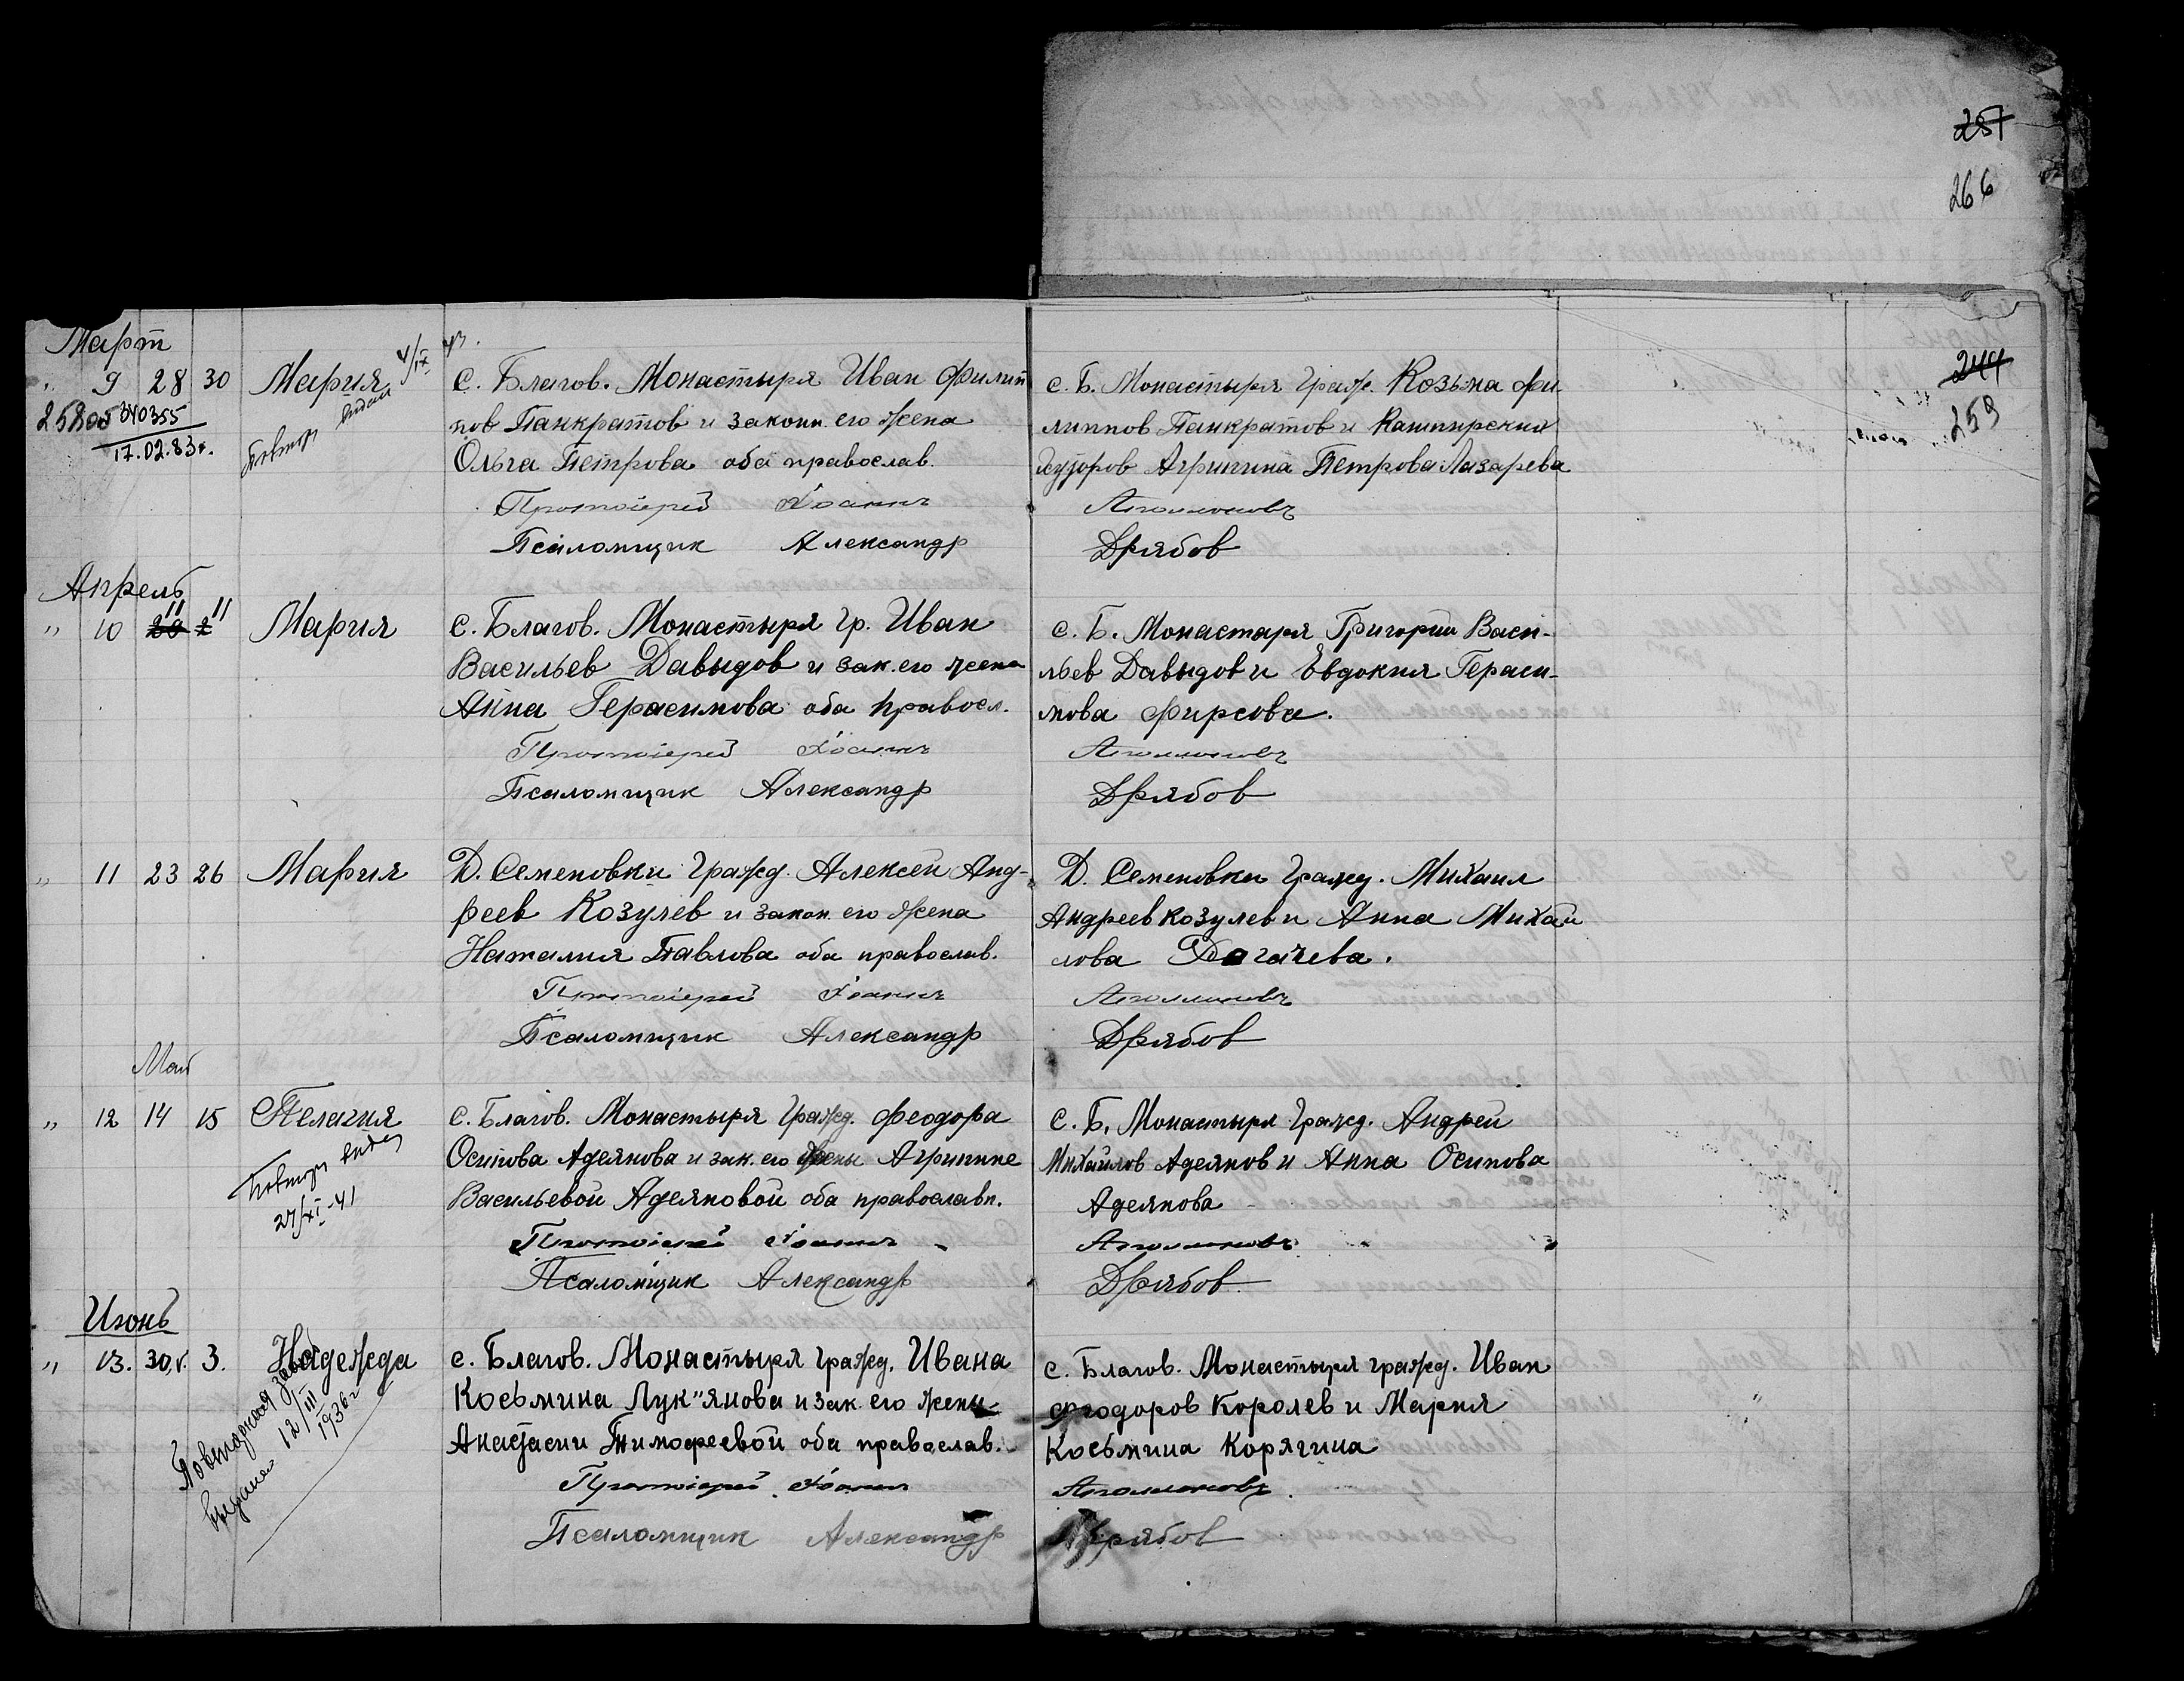 257
266
244
259
Март
" 9 28 30 Мария
4/IX 43.
Повтор видан
258 от 340355
17.02.83г.
с. Благов. Монастыря Иван Филип
пов Панкратов и законн. его жена
Ольга Петрова оба православ.
Протоіерей Іоаннъ
Псаломщик Александр
с. Б. Монастыря Граж. Козьма Фи-
липпов Панкратов и Каширских
Хуторов Агрипина Петрова Лазарева
Аполлоновъ
Дрябов
Апрель
" 10 20 2 Мария
11 11
с. Благов. Монастыря Гр. Иван
Васильев Давыдов и зак. его жена
Анна Герасимова оба правосл.
Протоіерей Іоаннъ
Псаломщик Александр
с. Б. Монастаря Григорий Васи-
льев Давыдов и Евдокия Гераси-
мова Фирсова.
Аполлоновъ
Дрябов
" 11 23 26 Мария
Д. Семеновки Гражд. Алексей Анд-
реев Козулев и закон. его жена
Наталия Павлова оба православ.
Протоіерей Іоаннъ
Псаломщик Александр
Д. Семеновки Гражд. Михаил
Андреев Козулев и Анна Михай
лова Догачева.
Аполлоновъ
Дрябов
Май
" 12 14 15 Пелагия
Повтор видан
27/XI-41
с. Благов. Монастыря Гражд. Феодора
Осипова Адеянова и зак. его жены Агрипине
Васильевой Адеяновой оба православн.
Протоіерей Іоаннъ
Псаломщик Александр
с. Б. Монастыря Гражд. Андрей
Михайлов Адеянов и Анна Осипова
Адеянова
Аполлоновъ
Дрябов
Июнь
" 13. 30,V. 3. Надежда
Повторная
выдана 12/III
1936г
с. Благов. Монастыря гражд. Ивана
Косьмина Лук"янова и зак. его жены
Анастасии Тимофеевой оба православ.
Протоіерей Іоаннъ
Псаломщик Александр
с. Благов. Монастыря гражд. Иван
Феодоров Королев и Мария
Косьмина Корягина
Аполлоновъ.
Дрябов